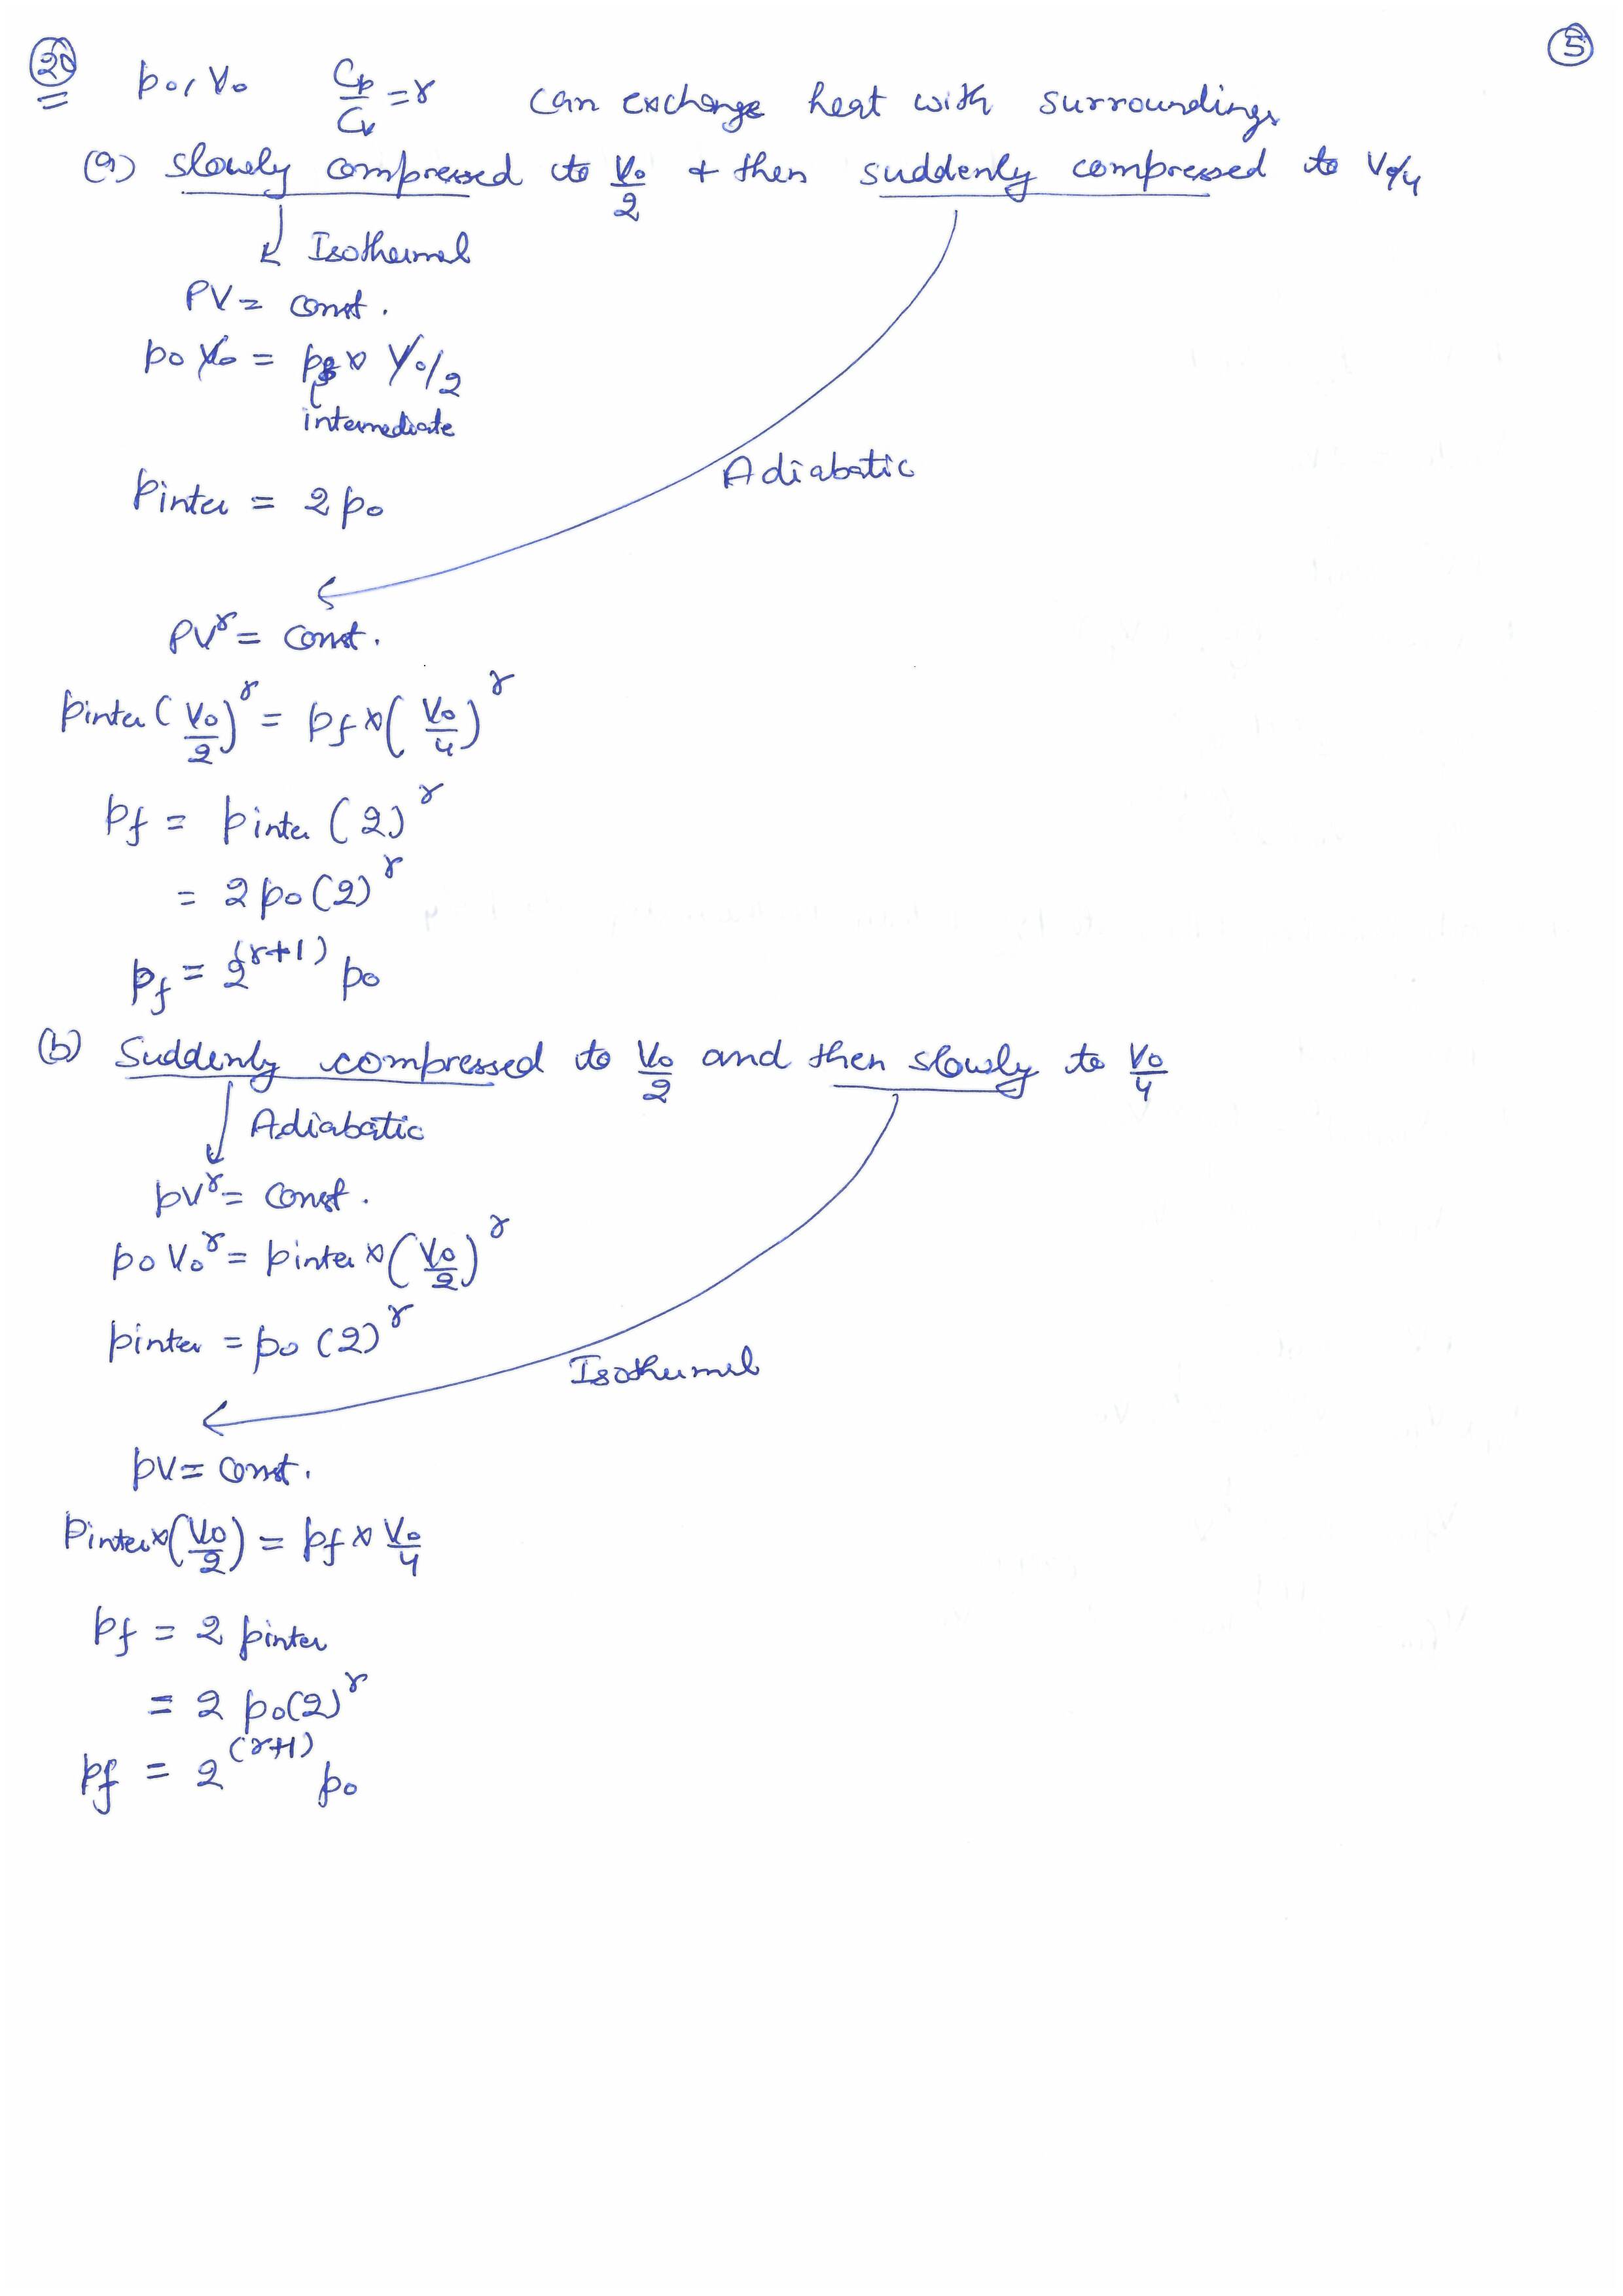 5
20 p₀, V₀ Cp/Cv = γ can exchange heat with surroundings
(a) slowly compressed to V₀/2 & then suddenly compressed to V₀/4
Isothermal
PV = const.
p₀ V₀ = p × V₀/2
intermediate
Adiabatic
pinter = 2 p₀
PV^γ = const.
pinter (V₀/2)^γ = pf × (V₀/4)^γ
pf = pinter (2)^γ
= 2 p₀ (2)^γ
pf = 2^(γ+1) p₀
(b) Suddenly compressed to V₀/2 and then slowly to V₀/4
Adiabatic
pV^γ = const.
p₀ V₀^γ = pinter × (V₀/2)^γ
pinter = p₀ (2)^γ
Isothermal
pV = const.
pinter × (V₀/2) = pf × V₀/4
pf = 2 pinter
= 2 p₀(2)^γ
pf = 2^(γ+1) p₀